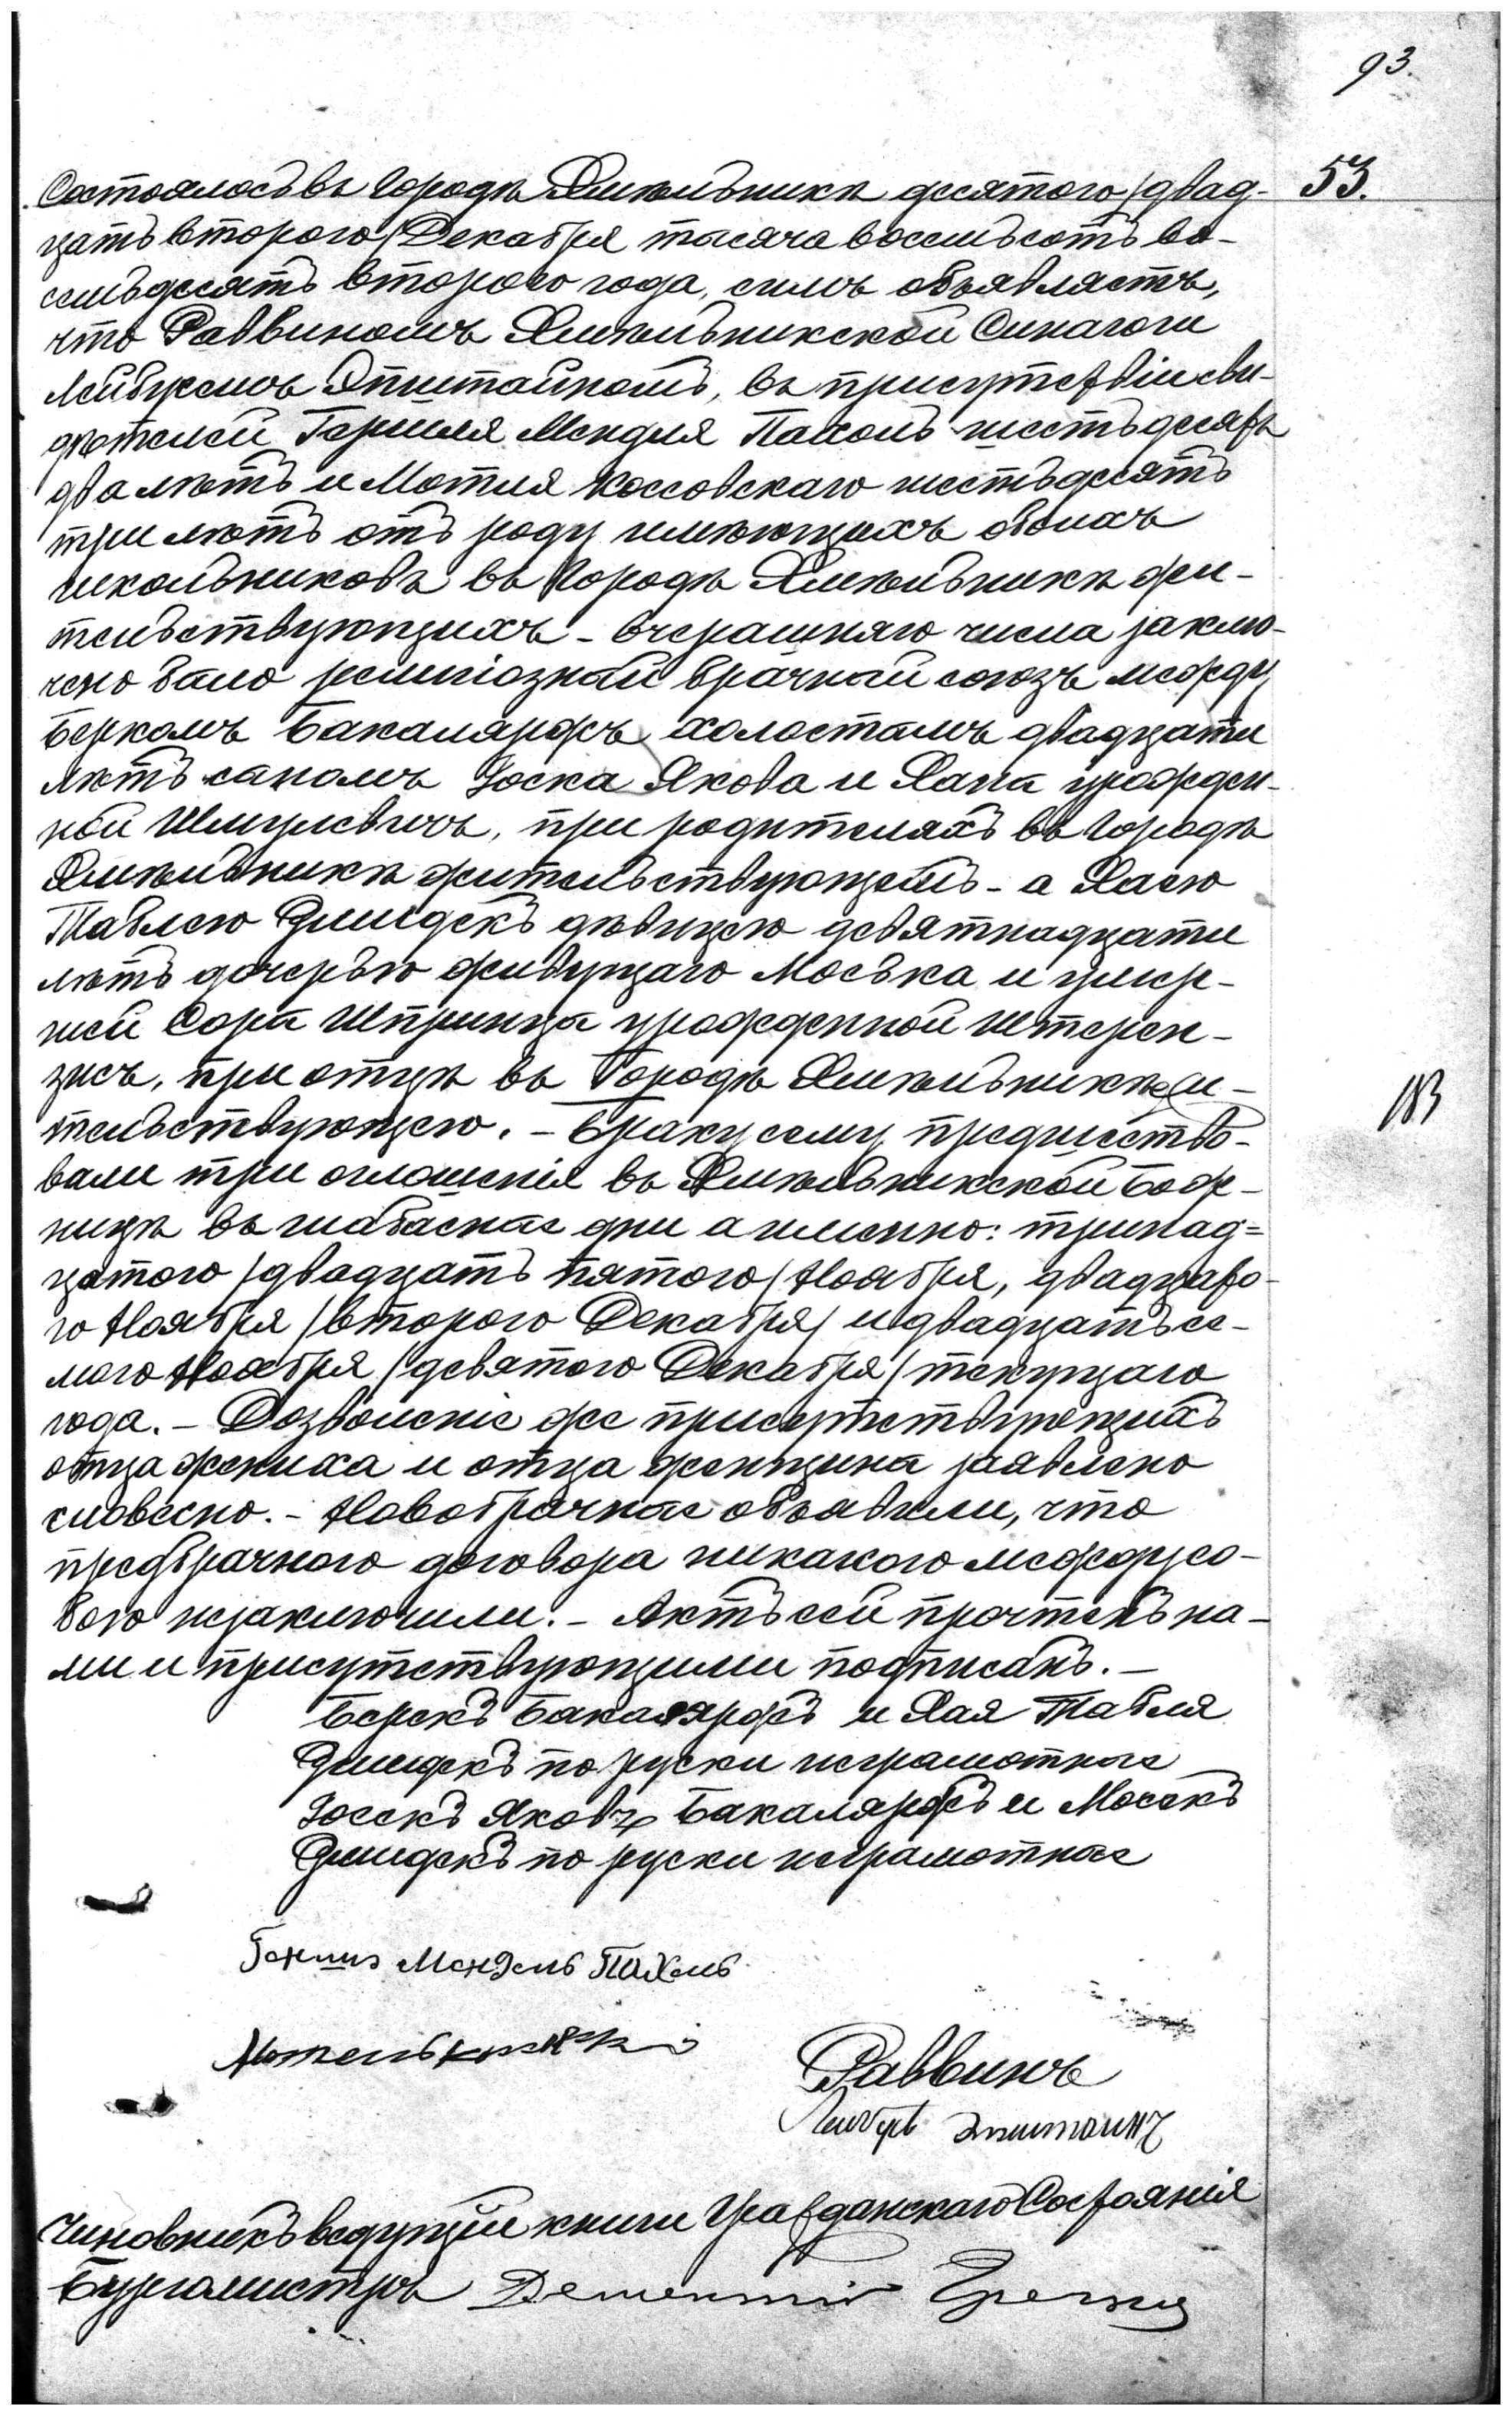 93.
53.
Состоялось въ Городѣ Хмѣльникѣ десятого /двад-
цать второго/ Декабря тысяча восемьсотъ во-
семьдесятъ второго года, симъ объявляетъ,
что Раввиномъ Хмѣльникской Синагоги
Лейбусемъ Эпштайномъ, въ присутствіи сви-
дѣтелей Гершля Мендля Пахоль шестьдесятъ
два лѣтъ и Мотеля Коссовскаго шестьдесятъ
три лѣтъ отъ роду имѣющихъ обоихъ
школьниковъ въ Городѣ Хмѣльникѣ жи-
тельствующихъ - вчерашняго числа заклю-
чено было религіозный брачный союзъ между
Беркомъ Бакаляржъ холостымъ двадцати
лѣтъ сыномъ Іоска Якова и Ханы урожден-
ной Шмулевичъ, при родителяхъ въ Городѣ
Хмѣльникѣ жительствующемъ - а Хаею
Таблею дѣвицею девятнадцати
лѣтъ дочерью живущаго Моська и умер-
шей Соры Шпринцы урожденной Штерен-
зисъ, при отцѣ въ Городѣ Хмѣльникѣ жи-
тельствующею. - Браку сему предшество-
вали три оглашенія въ Хмѣльникской Бож-
ницѣ въ шабасные дни а именно: тринад=
цатого /двадцать пятого/ Ноября, двадцато-
го Ноября /второго Декабря/ и двадцать се-
мого Ноября /девятого Декабря/ текущаго
года. - Дозволеніе же присутствующихъ
отца жениха и отца женщины заявлено
словесно. - Новобрачные объявили, что
предбрачного договора никакого между со-
бою незаключили. - Актъ сей прочтенъ на-
ми и присутствующими подписанъ. -
Берекъ Бакаляржъ и Хая Табля
по руски неграмотные
Іосекъ Яковъ Бакаляржъ и Мосекъ
по руски неграмотные
Гершл Мендель Пахоль
Мотель
Раввинъ
Лейбусь Эпштаинъ
Чиновникъ ведущій книги Гражданскаго Состоянія
Бургомистръ
183